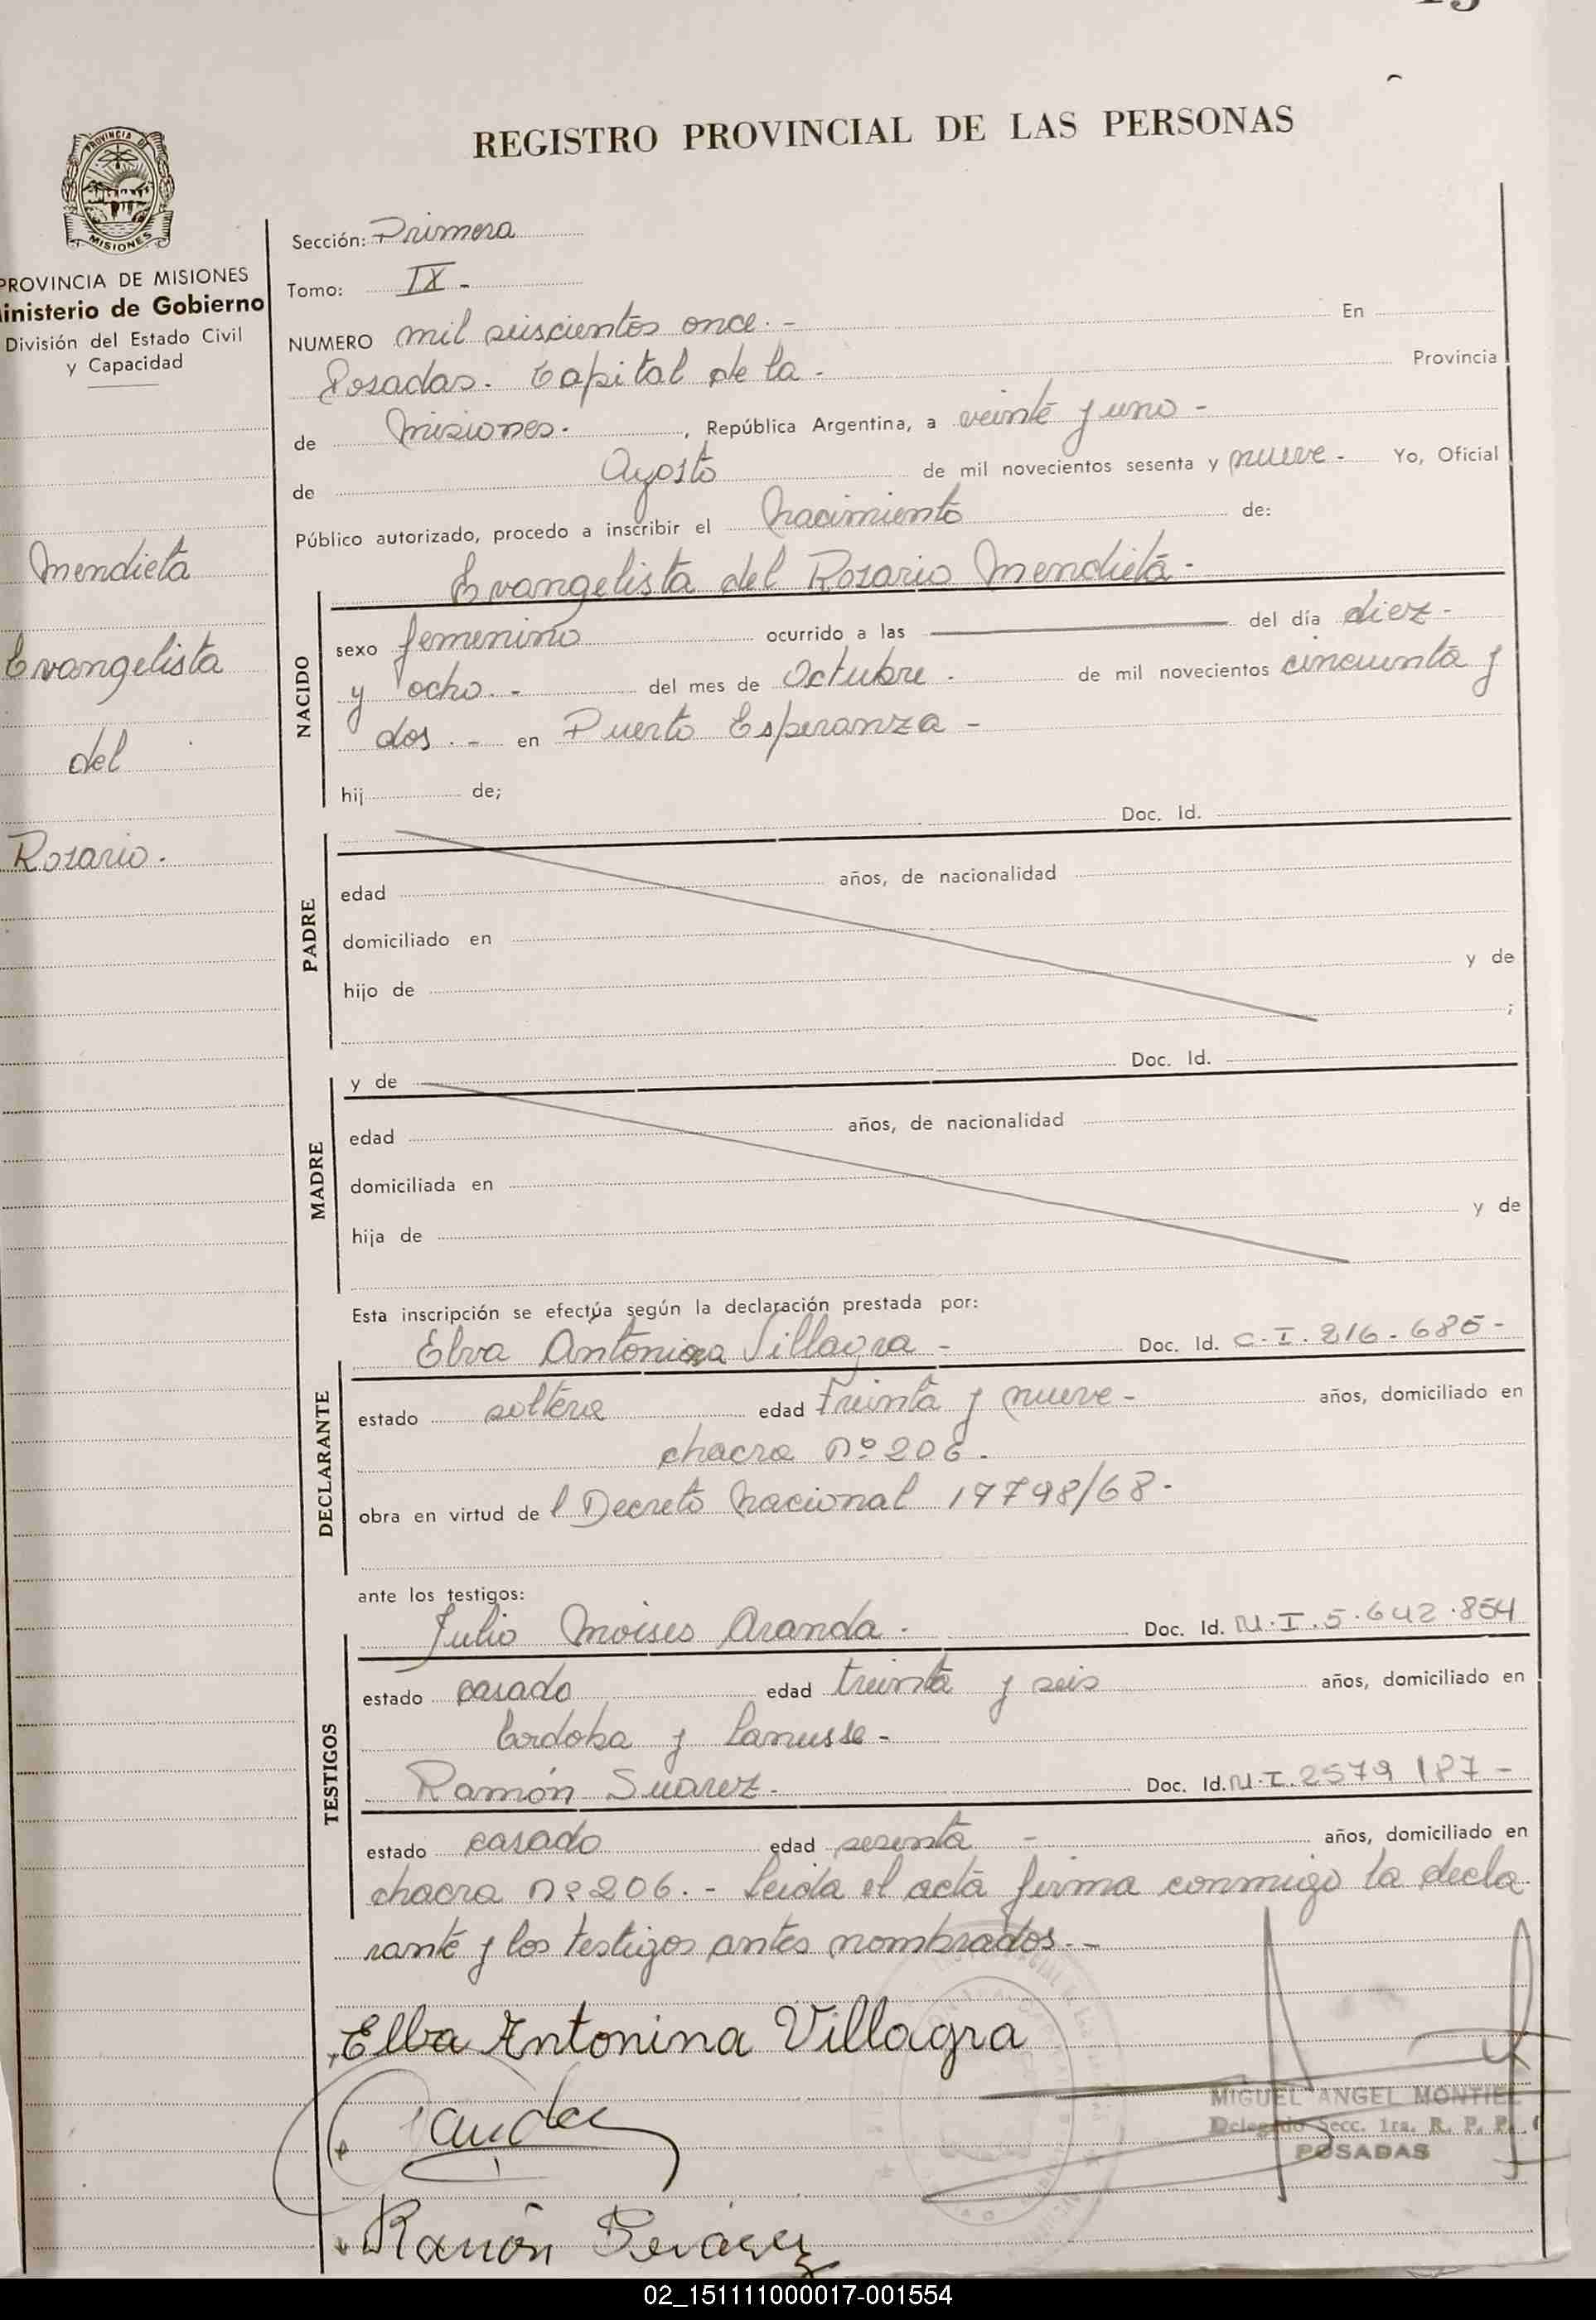 REGISTRO PROVINCIAL DE LAS PERSONAS
PROVINCIA DE
MISIONES
PROVINCIA DE MISIONES
inisterio de Gobierno
División del Estado Civil
y Capacidad
Mendieta
Evangelista
del
Rosario.
Sección: Primera
Tomo: IX -
NUMERO mil seiscientos once. - En
Posadas. Capital de la - Provincia
de Misiones. , República Argentina, a veinte y uno -
de Agosto de mil novecientos sesenta y nueve - Yo, Oficial
Público autorizado, procedo a inscribir el Nacimiento de:
Evangelista del Rosario Mendieta -
NACIDO
sexo femenino ocurrido a las del día diez -
y ocho. - del mes de Octubre - de mil novecientos cincuenta y
dos. - en Puerto Esperanza -
hij de;
PADRE
Doc. Id.
edad años, de nacionalidad
domiciliado en
hijo de y de
;
MADRE
y de Doc. Id.
edad años, de nacionalidad
domiciliada en
hija de y de
Esta inscripción se efectúa según la declaración prestada por:
DECLARANTE
Elva Antonina Villagra - Doc. Id. C.I. 216.685-
estado soltera edad treinta y nueve - años, domiciliado en
chacra nº 206.
obra en virtud de l Decreto Nacional 17798/68-
ante los testigos:
TESTIGOS
Julio Moises Aranda. Doc. Id. M.I. 5.642.854
estado casado edad treinta y seis años, domiciliado en
Cordoba y Lanusse -
Ramón Suarez. Doc. Id. M.I. 2579187-
estado casado edad sesenta - años, domiciliado en
chacra nº 206. - Leida el acta firma conmigo la decla
rante y los testigos antes nombrados. -
Elba Antonina Villagra
MIGUEL ANGEL MONTIEL
Delegado Secc. 1ra. R. P. P.
POSADAS
Ramón
02_151111000017-001554